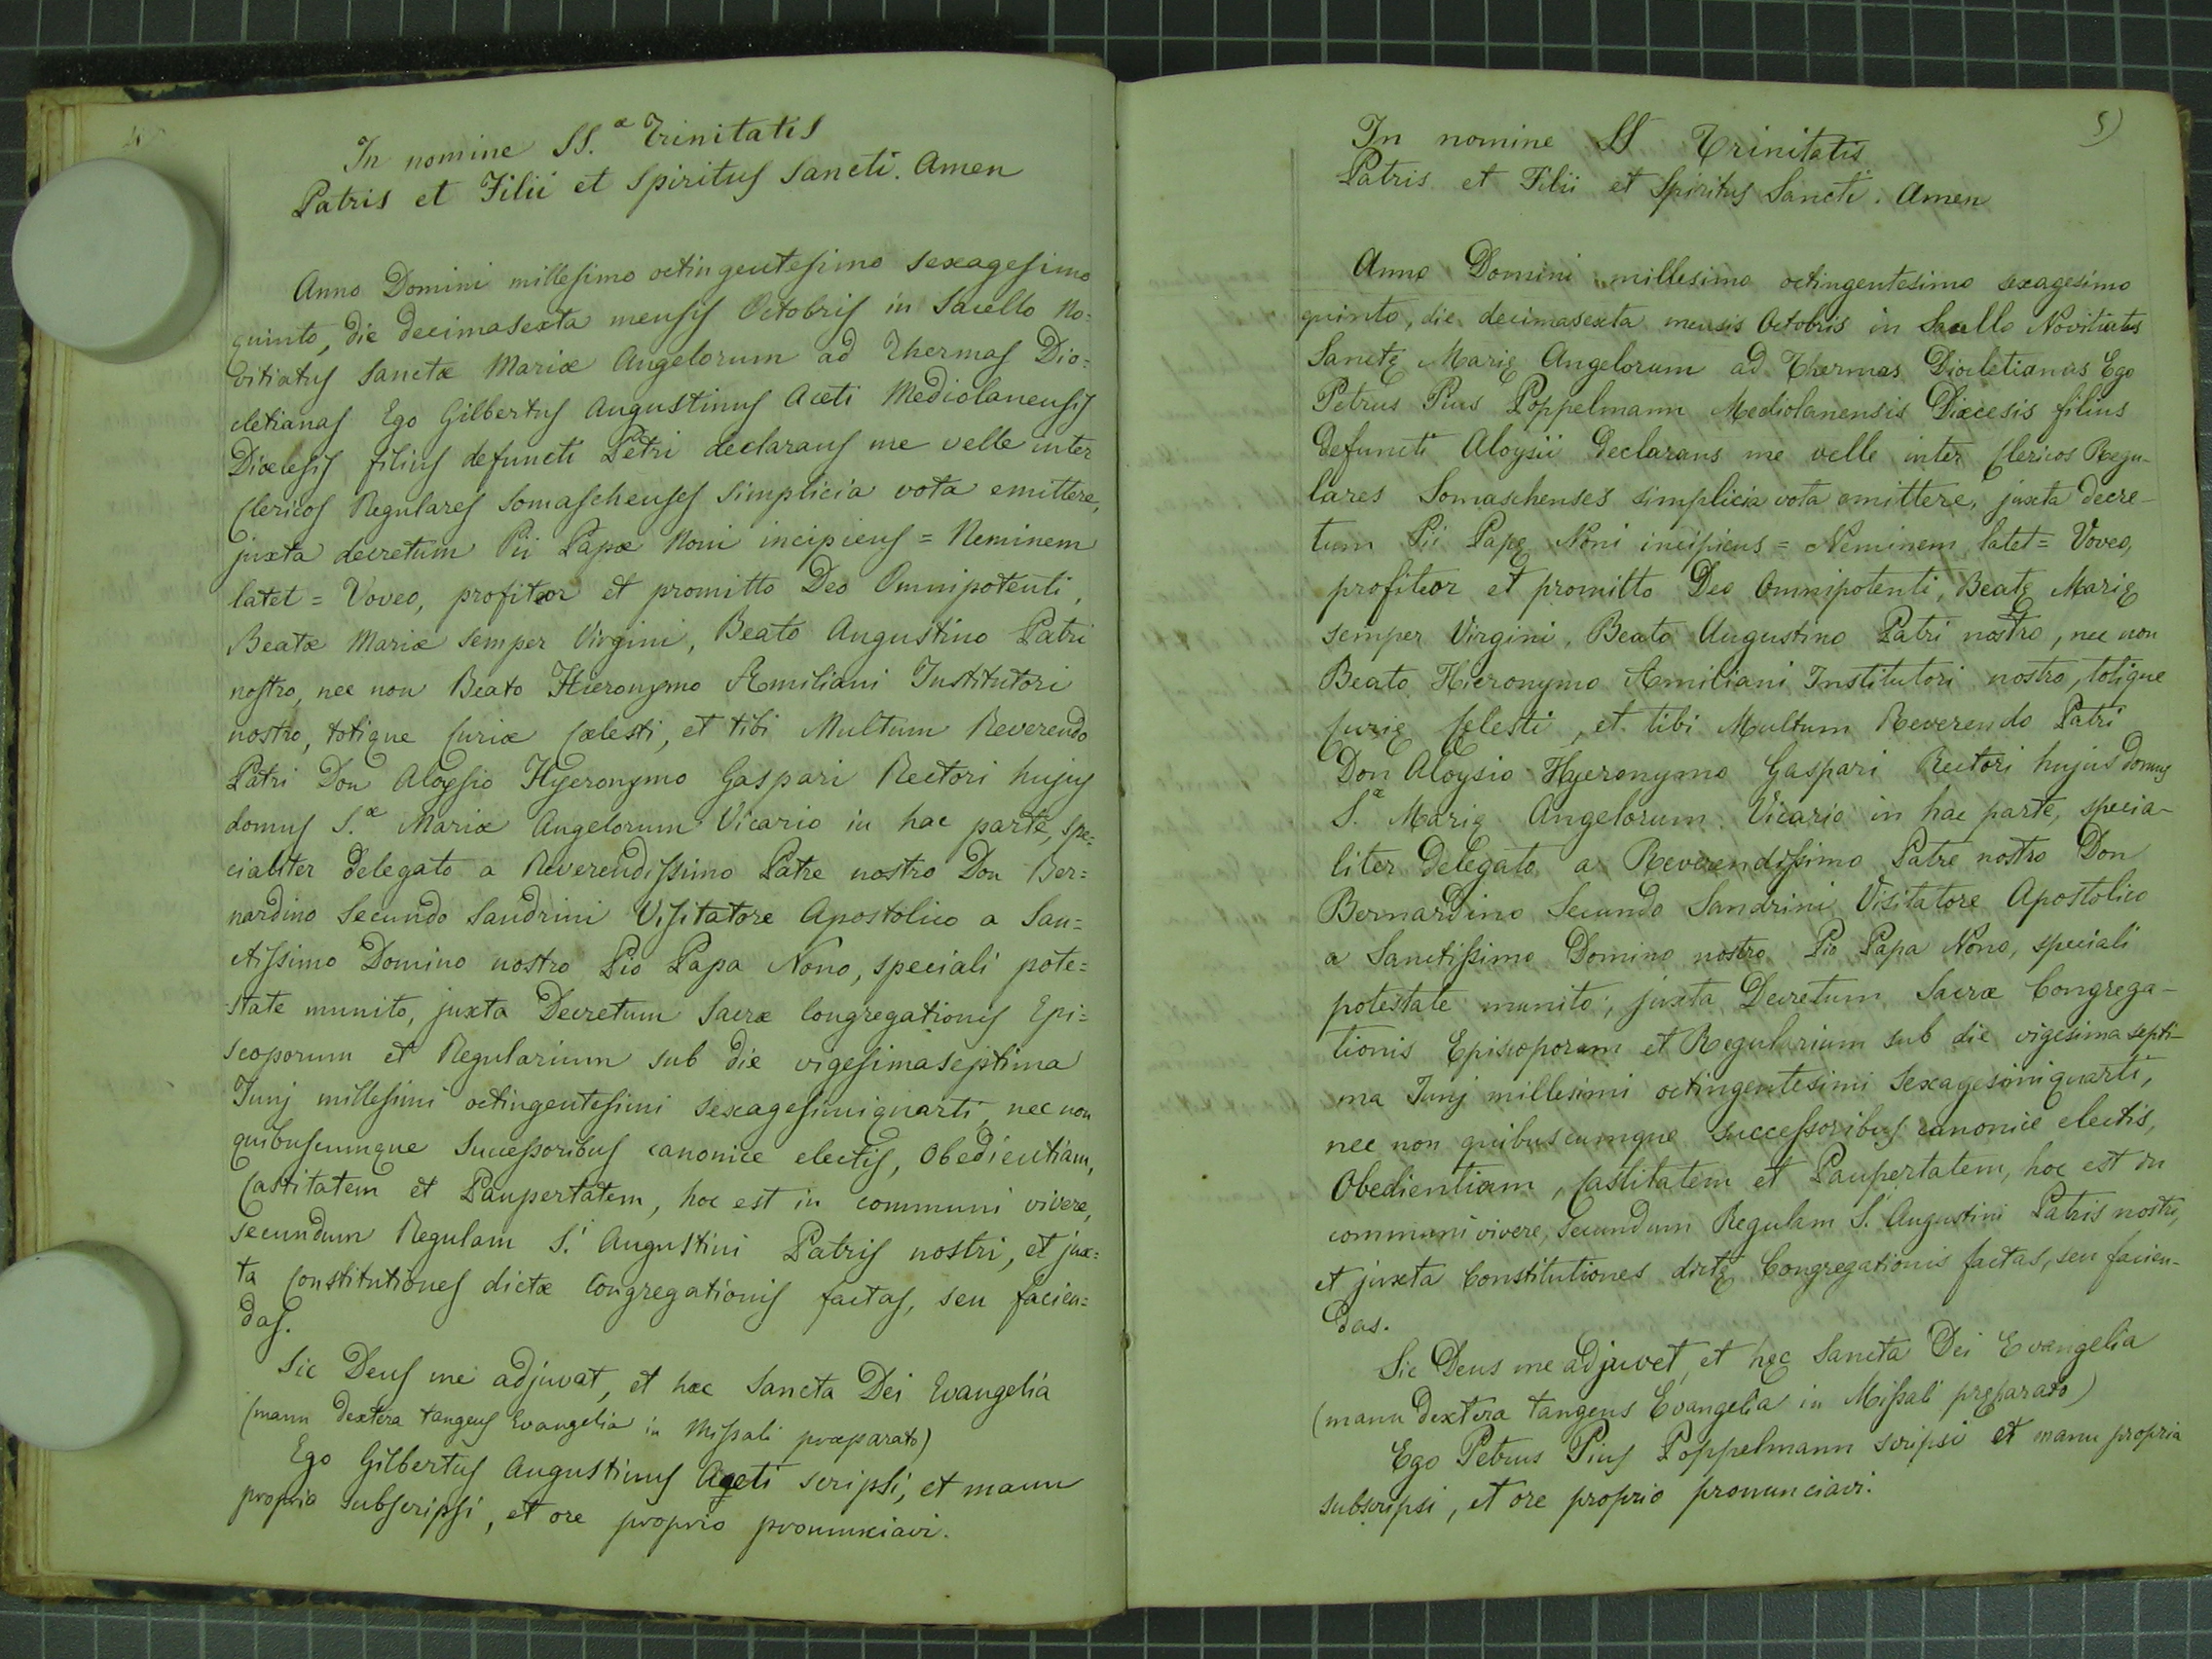 In nomine SS.æ Trinitatis
Patris et Filii et Spiritus Sancti. Amen
Anno Domini millesimo octingentesimo sexagesimo
quinto, die decimasexta mensis Octobris in Sacello No=
vitiatus Sanctæ Mariæ Angelorum ad Thermas Dio=
cletianas Ego Gilbertus Augustinus Aceti Mediolanensis
Diœcesis filius defuncti Petri declarans me velle inter
Clericos Regulares Somaschenses simplicia vota emittere,
juxta decretum Pii Papæ Noni incipiens = Neminem
latet = Voveo, profiteor et promitto Deo Omnipotenti,
Beatæ Mariæ semper Virgini, Beato Augustino Patri
nostro, nec non Beato Hieronymo Æmiliani Institutori
nostro, totique Curiæ Cœlesti, et tibi Multum Reverendo
Patri Don Aloysio Hyeronymo Gaspari Rectori hujus
domus S.æ Mariæ Angelorum Vicario in hac parte, spe=
cialiter delegato a Reverendissimo Patre nostro Don Ber=
nardino Secundo Sandrini Visitatore Apostolico a San=
ctissimo Domino nostro Pio Papa Nono, speciali pote=
state munito, juxta Decretum Sacræ Congregationis Epi=
scoporum et Regularium sub die vigesimaseptima
Junj millesimi octingentesimi sexagesimiquarti, nec non
quibuscumque Successoribus canonice electis, Obedientiam,
Castitatem et Paupertatem, hoc est in communi vivere,
secundum Regulam S.i Augustini Patris nostri, et jux=
ta Constitutiones dictæ Congregationis factas, seu facien=
das.
Sic Deus me adjuvat, et hæc Sancta Dei Evangelia
(manu dextera tangens Evangelia in Missali præparato)
Ego Gilbertus Augustinus Aceti scripsi, et manu
propria subscripsi, et ore proprio pronunciavi.
5)
In nomine SS Trinitatis
Patris et Filii et Spiritus Sancti. Amen
Anno Domini millesimo octingentesimo sexagesimo
quinto, die decimasexta mensis Octobris in Sacello Novitiatus
Sanctę Marię Angelorum ad Thermas Diocletianas Ego
Petrus Pius Poppelmann Mediolanensis Diæcesis filius
defuncti Aloysii declarans me velle inter Clericos Regu-
lares Somaschenses simplicia vota emittere, juxta decre-
tum Pii Papę Noni incipiens = Neminem latet = Voveo,
profiteor et promitto Deo Omnipotenti, Beatę Marię
semper Virgini, Beato Augustino Patri nostro, nec non
Beato Hieronymo Æmiliani Institutori nostro, totique
Curię Cęlesti, et tibi Multum Reverendo Patri
Don Aloysio Hyeronymo Gaspari Rectori hujus domus
S.æ Marię Angelorum Vicario in hac parte, specia-
liter delegato a Reverendissimo Patre nostro Don
Bernardino Secundo Sandrini Visitatore Apostolico
a Sanctissimo Domino nostro Pio Papa Nono, speciali
potestate munito, juxta Decretum Sacræ Congrega-
tionis Episcoporum et Regularium sub die vigesima septi-
ma Junj millesimi octingentesimi sexagesimiquarti,
nec non quibuscumque successoribus canonice electis,
Obedientiam, Castitatem et Paupertatem, hoc est in
communi vivere, secundum Regulam S. Augustini Patris nostri,
et juxta Constitutiones dictę Congregationis factas, seu facien-
das.
Sic Deus me adjuvet, et hęc Sancta Dei Evangelia
(manu dextera tangens Evangelia in Missali pręparato)
Ego Petrus Pius Poppelmann scripsi et manu propria
subscripsi, et ore proprio pronunciavi.